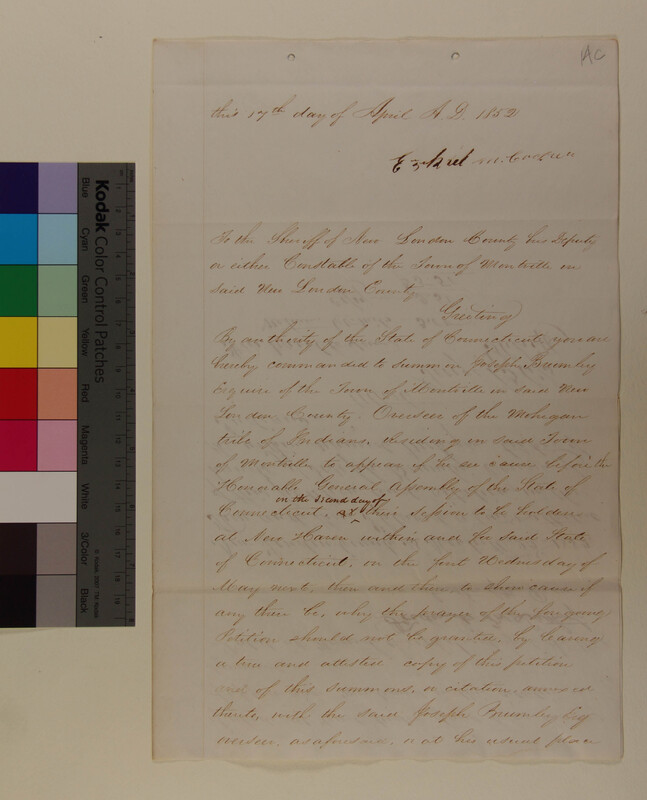 AC
this 17th day of April A.D. 1852
Ezekiel
To the Sheriff of New London County his Deputy
or either Constable of the Town of Montville in
said New London County
Greeting
By authority of the State of Connecticut you are
hereby commanded to summon Joseph Bromley
Esquire of the Town of Montville in said New
London County. Overseer of the Mohegan
tribe of Indians, residing in said Town
of Montville to appear if he see cause before the
Honorable General Assembly of the State of
on the second day of
Connecticut, at their session to be holden
at New Haven within and for said State
of Connecticut, on the first Wednesday of
May next, then and there, to show cause if
any there be, why the prayer of the foregoing
Petition should not be granted, by leaving
a true and attested copy of this petition
and of this summons, or citation, annexed
thereto, with the said Joseph Bromley Esq
as aforesaid, or at his usual place
Kodak Color Control Patches
© Kodak, 2007 TM: Kodak
Blue
Cyan
Green
Yellow
Red
Magenta
White
3/Color
Black